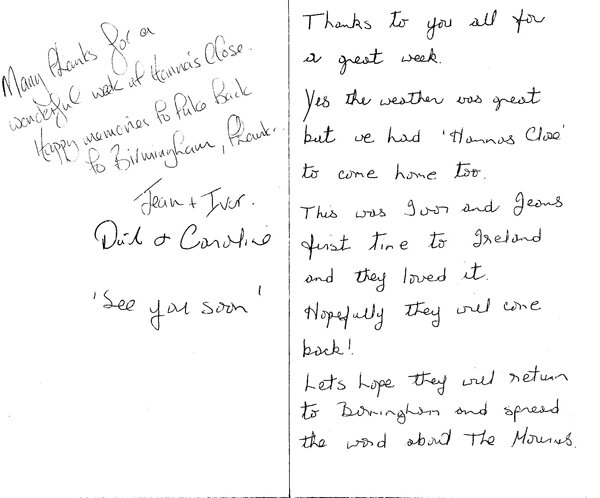 Many thanks for a
wonderful week at Hanna's Close.
Happy memories to take Back
to Birmingham, Thank..
Jean + Ivor.
& Caroline
'See you soon'
Thanks to you all for
a great week.
Yes the weather was great
but we had 'Hannas Close'
to come home too.
This was Ivor and Jeans
first time to Ireland
and they loved it.
Hopefully they will come
back!
Lets hope they will return
to Birmingham and spread
the word about The Mournes.